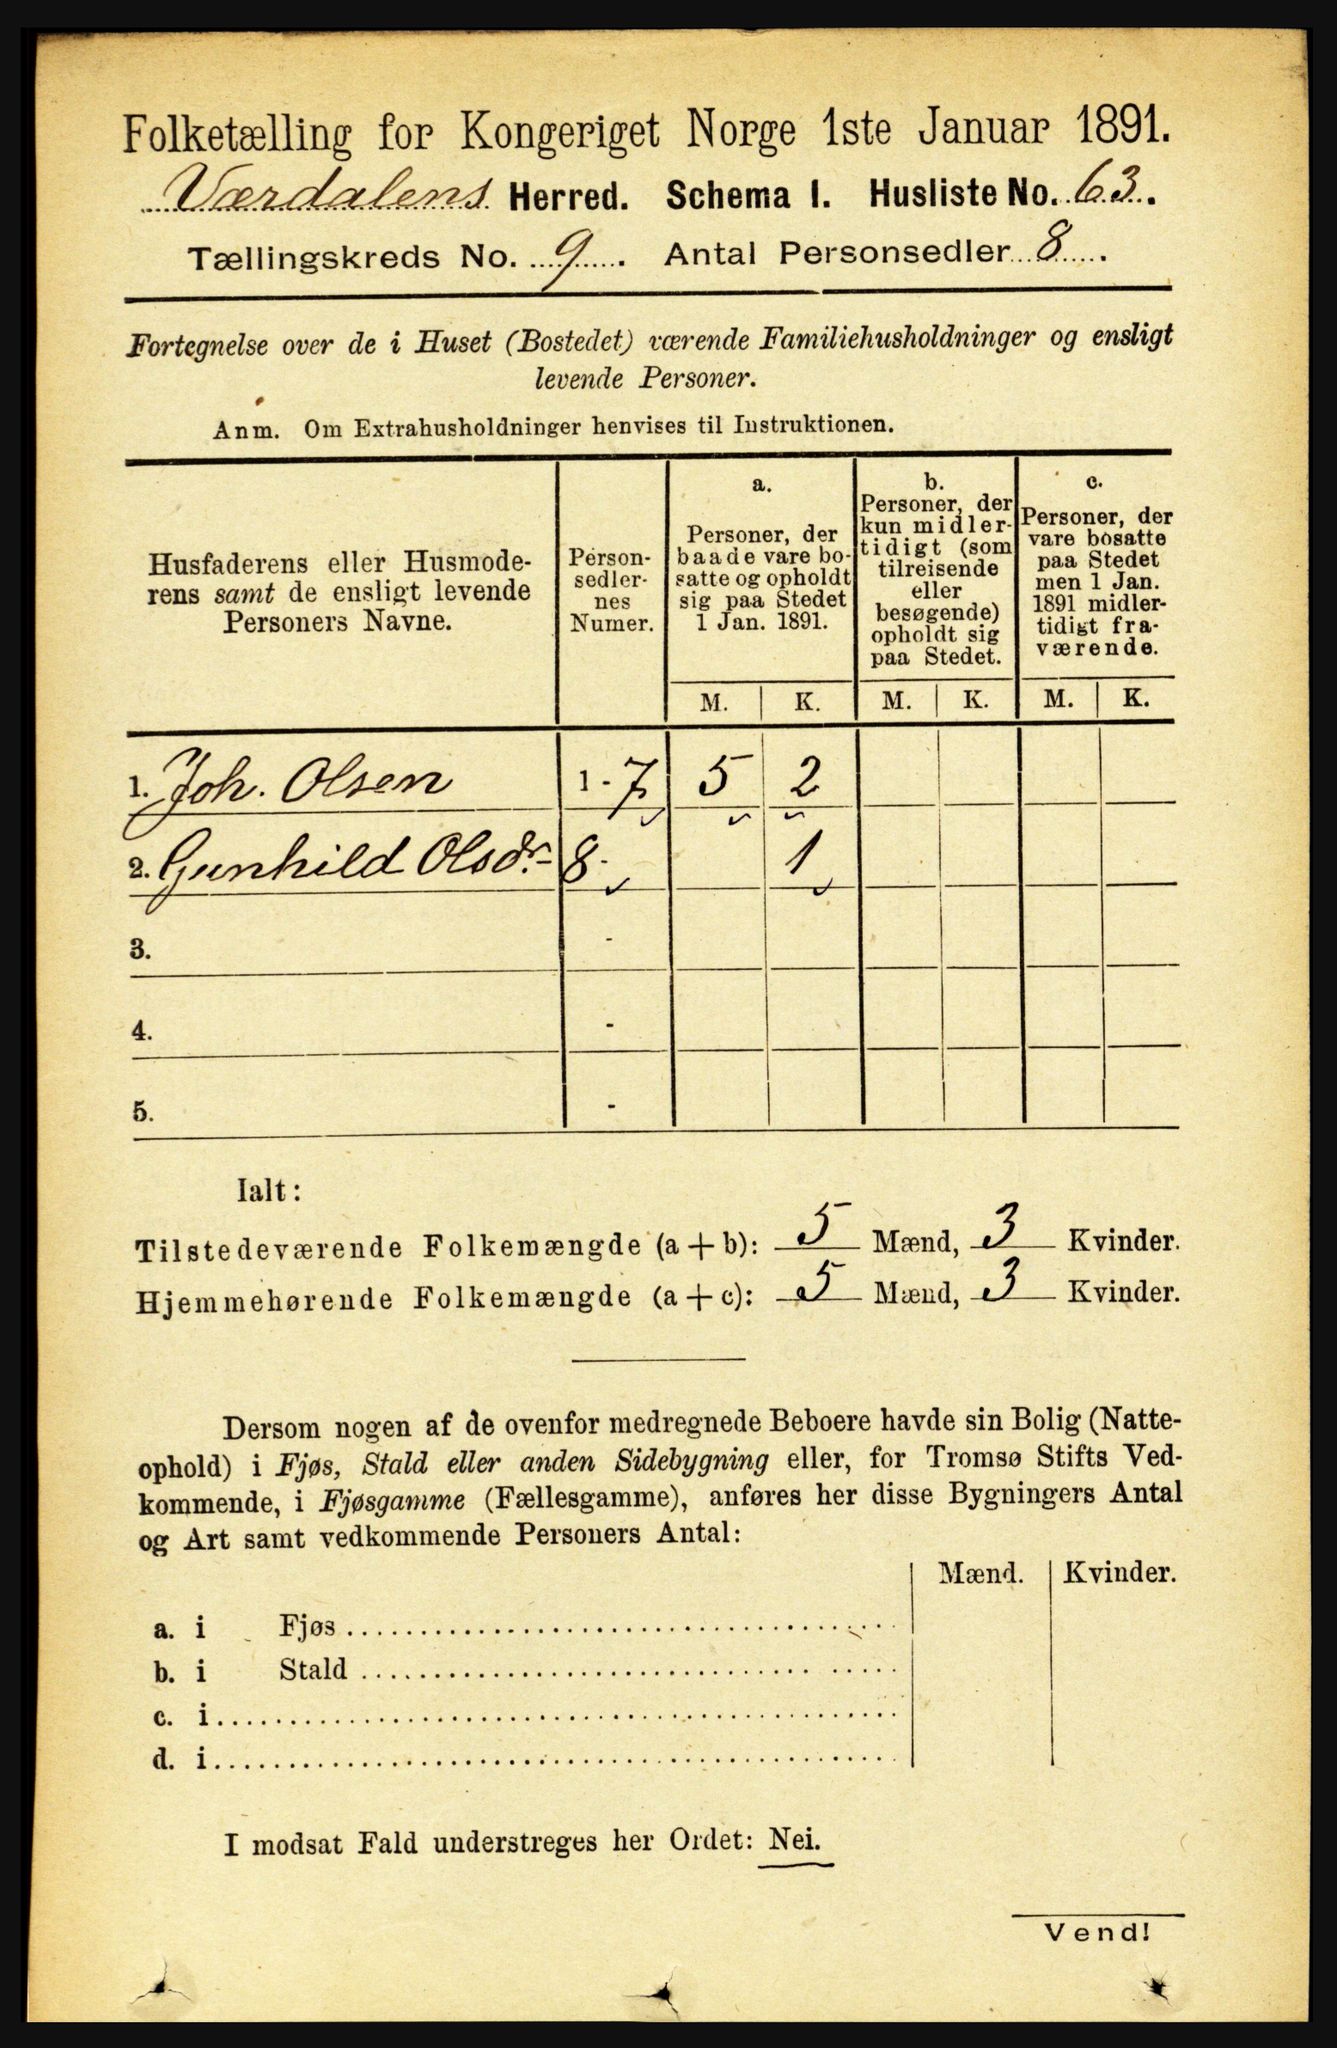 Folketælling for Kongeriget Norge 1ste Januar 1891.
Værdalens Herred. Schema I. Husliste No. 63.
Tællingskreds No. 9. Antal Personsedler 8.
Fortegnelse over de i Huset (Bostedet) værende Familiehusholdninger og ensligt
levende Personer.
Anm. Om Extrahusholdninger henvises til Instruktionen.
Husfaderens eller Husmode-
rens samt de ensligt levende
Personers Navne.
Person-
sedler-
nes
Numer.
a.
Personer, der
baade vare bo-
satte og opholdt
sig paa Stedet
1 Jan. 1891.
b.
Personer, der
kun midler-
tidigt (som
tilreisende
eller
besøgende)
opholdt sig
paa Stedet.
c.
Personer, der
vare bosatte
paa Stedet
men 1 Jan.
1891 midler-
tidigt fra-
værende.
M. K. M. K. M. K.
1. Joh. Olsen 1 - 7 5 2
2. Gunhild Olsdr. 8 - 1
3. -
4. -
5. -
Ialt:
Tilstedeværende Folkemængde (a + b): 5 Mænd, 3 Kvinder.
Hjemmehørende Folkemængde (a + c): 5 Mænd, 3 Kvinder.
Dersom nogen af de ovenfor medregnede Beboere havde sin Bolig (Natte-
ophold) i Fjøs, Stald eller anden Sidebygning eller, for Tromsø Stifts Ved-
kommende, i Fjøsgamme (Fællesgamme), anføres her disse Bygningers Antal
og Art samt vedkommende Personers Antal:
Mænd. Kvinder.
a. i Fjøs
b. i Stald
c. i
d. i
I modsat Fald understreges her Ordet: Nei.
Vend!